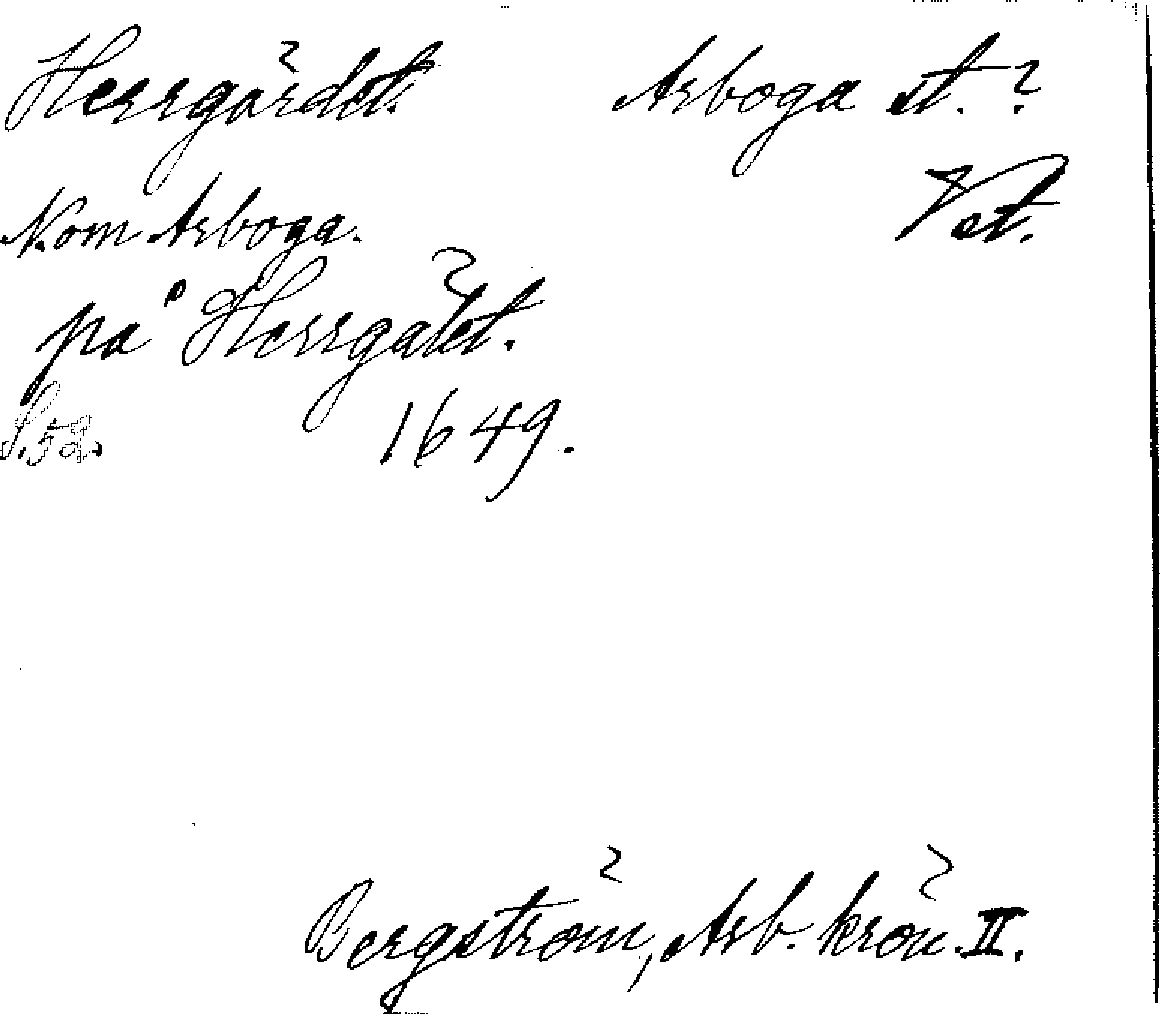 Herrgärdet. Arboga st.?
N. om Arboga. Vst.
på Herrgälet.
S. 52. 1649.
Bergström, Arb. krön. II.